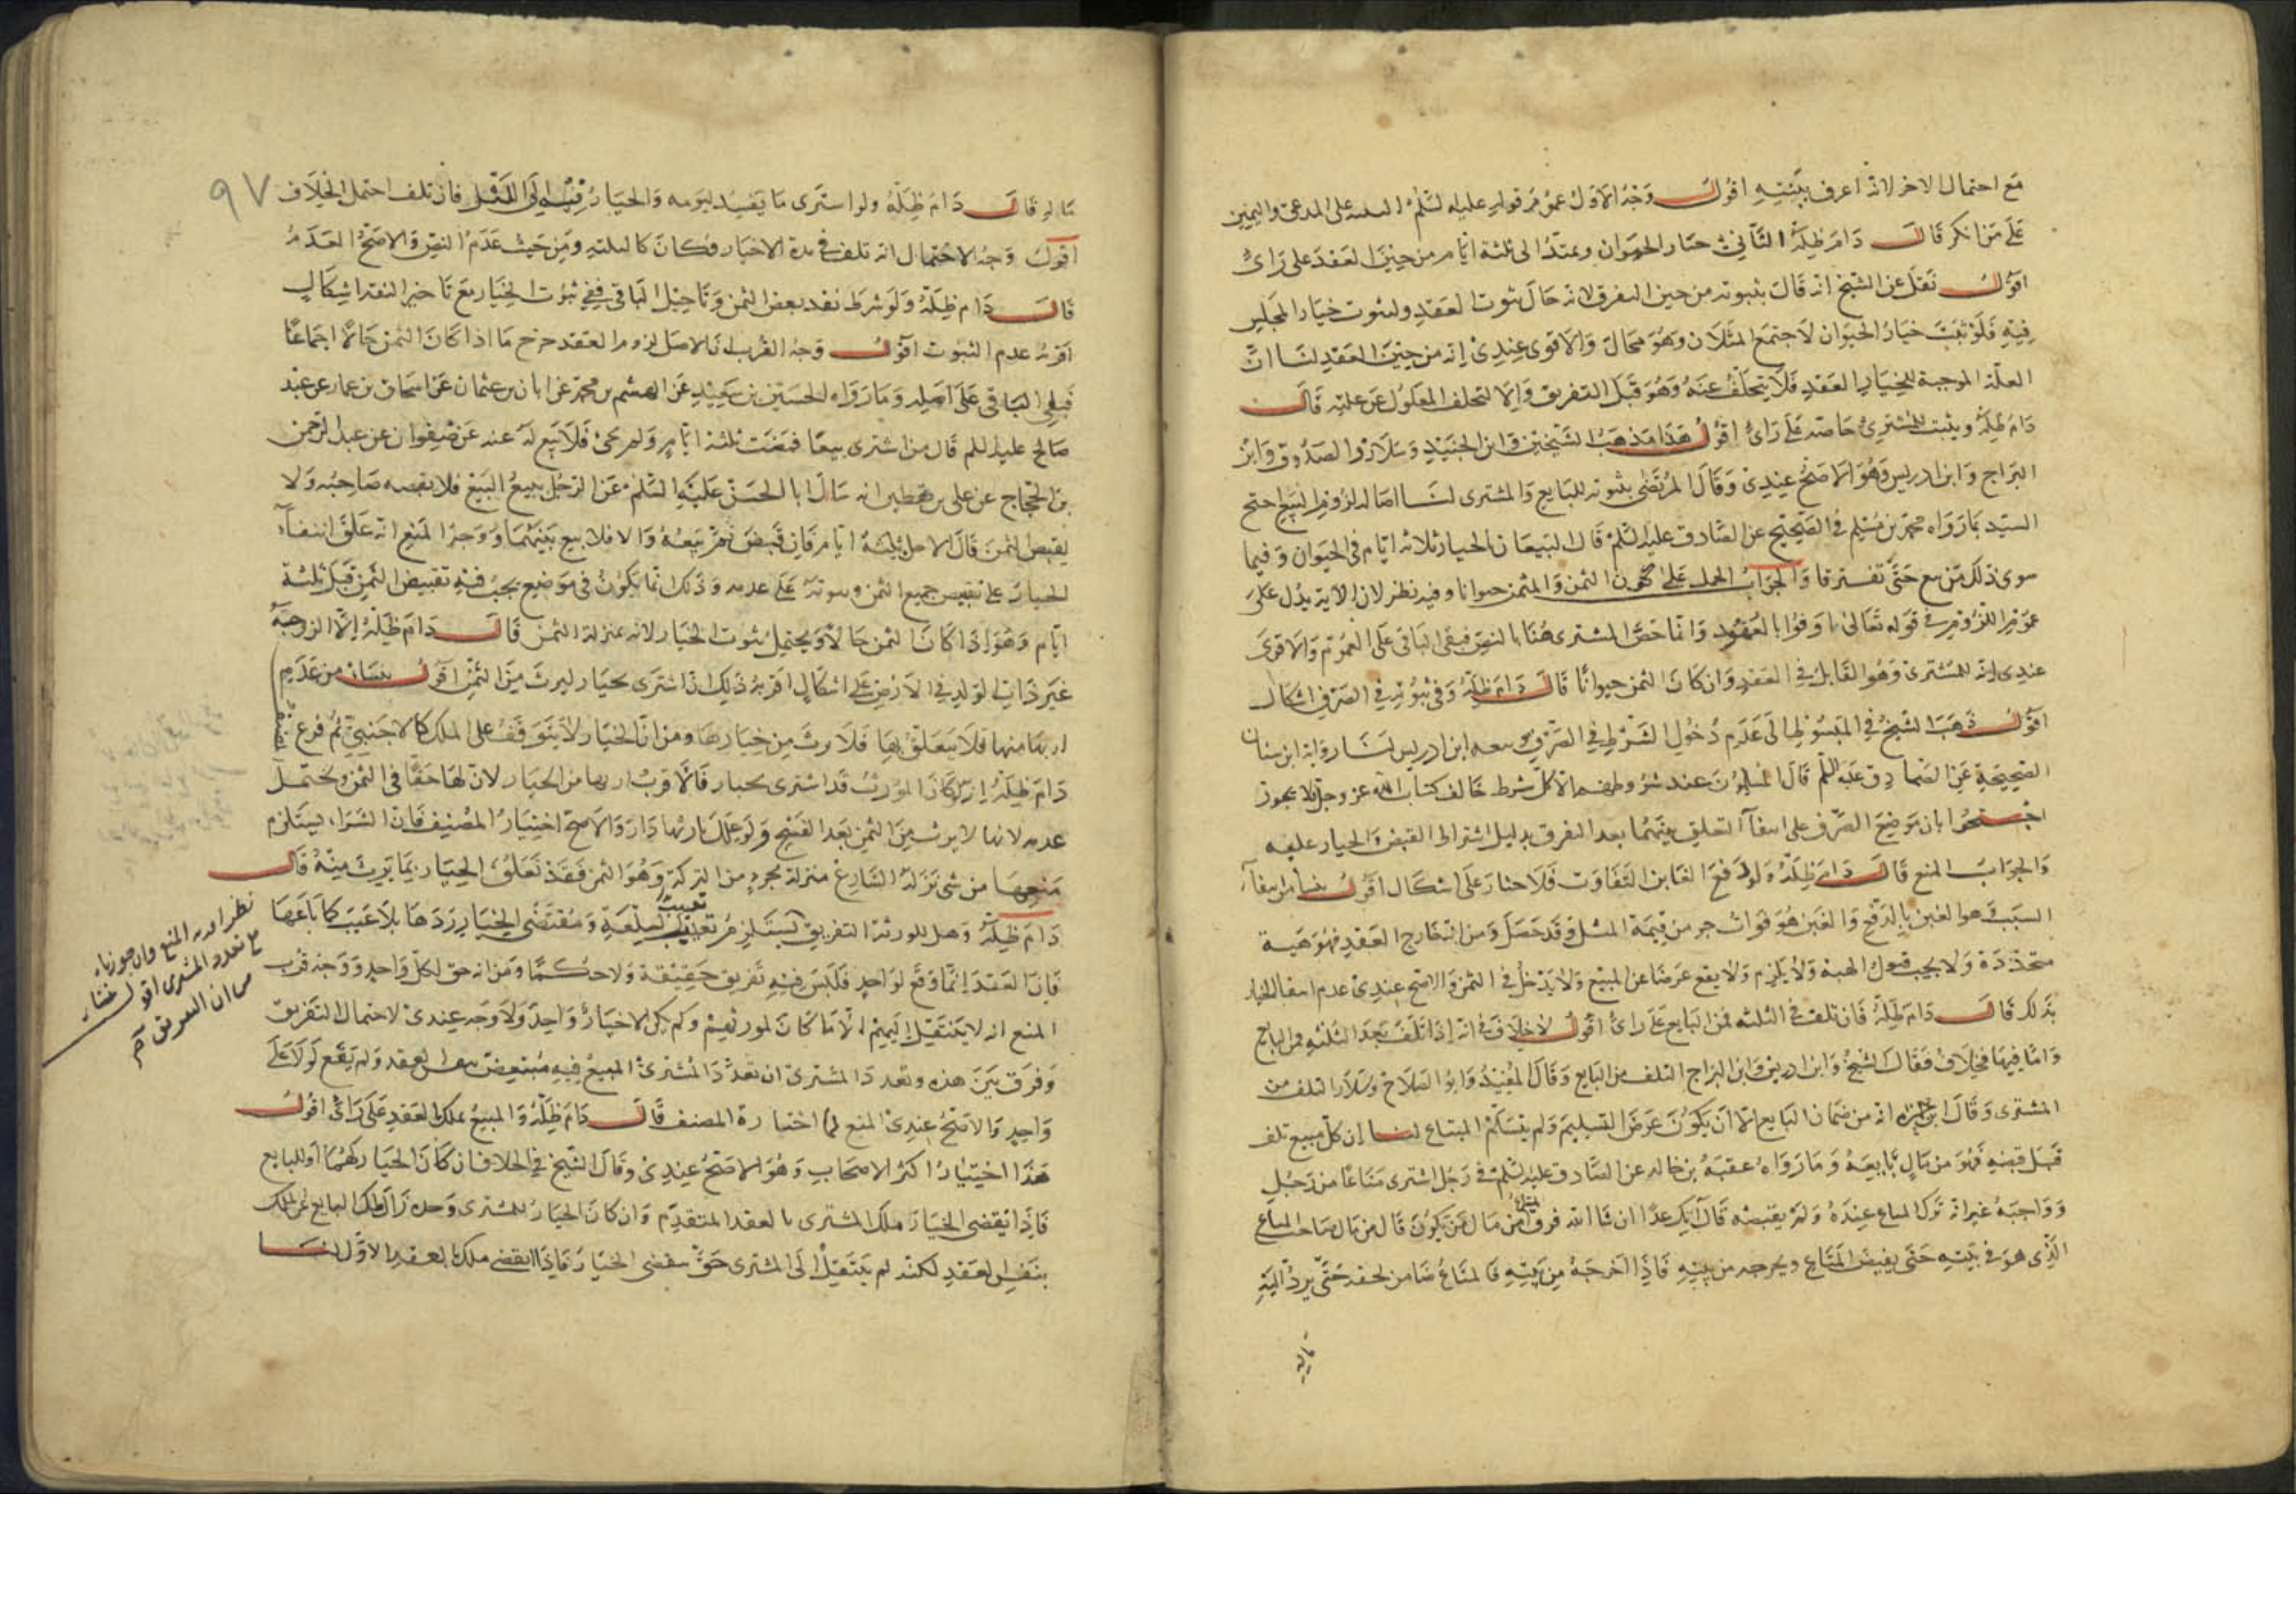 مع احتمال الاخر لانه اعرف بنيته اقول وجه الاول عموم قوله عليه السلم البينة على المدعى واليمين
على من انكر قال دام ظله الثاني خيار الحيوان ويمتد الى ثلثة ايام من حين العقد على راى
اقول نقل عن الشيخ انه قال بثبوته من حين التفرق لانه حال ثبوت العقد ولثبوت خيار المجلس
فيه فلو ثبت خيار الحيوان لاجتمع المثلان وهو محال والاقوى عندى انه من حين العقد لنا ان
العلة الموجبة للخيار العقد فلا يتخلف عنه وهو قبل التفريق والا لتخلف المعلول عن علته قال
دام ظله ويثبت للمشترى خاصة على راى اقول هذا مذهب الشيخين وابن الجنيد وسلار والصدوق وابن
البراج وابن ادريس وهو الاصح عندى وقال المرتضى بثبوته للبايع والمشترى لنا اصالة لزوم البيع احتج
السيد بما رواه محمد بن مسلم في الصحيح عن الصادق عليه السلم قال البيعان بالخيار ثلاثة ايام في الحيوان وفيما
سوى ذلك من بيع حتى تفترقا والجواب الحمل على كون الثمن والمثمن حيوانا وفيه نظر لان الاية يدل على
عموم اللزوم في قوله تعالى اوفوا بالعقود وانما خص المشترى هنا بالنص فبقى الباقى على العموم والاقوى
عندى انه للمشترى وهو القابل في العقد وان كان الثمن حيوانا قال دام ظله وفى ثبوته في الصرف اشكال
اقول ذهب الشيخ في المبسوط الى عدم دخول الشرط في الصرف وتبعه ابن ادريس لنا رواية ابن سنان
الصحيحة عن الصادق عليه السلم قال المسلمون عند شروطهم الا كل شرط خالف كتاب الله عز وجل فلا يجوز
احتجوا بان موضع الصرف على انتفاء التعليق بينهما بعد التفرق بدليل اشتراط القبض والخيار عليقه
والجواب المنع قال دام ظله ولو دفع الغابن التفاوت فلا خيار على اشكال اقول ينشأ من انتفاء
السبب هو الغبن بالدفع والغبن هو فوات جزء من قيمة المثل وقد حصل ومن ان الخارج العقد فهو هبة
متجددة ولا يجب قبول الهبة ولا يلزم ولا يقع عرضا عن المبيع ولا يدخل في الثمن والاصح عندى عدم انتفا الخيار
بذلك قال دام ظله فان تلف في الثلثه فمن البايع على راى اقول لا خلاف في انه اذا تلف بعد الثلثه فمن البايع
واما فيها فخلاف فقال الشيخ وابن ادريس وابن البراج التلف من البايع وقال المفيد وابو الصلاح وسلار التلف من
المشترى وقال ابن حمزة انه من ضمان البايع الا ان يكون عرض التسليم ولم يتسلم المبتاع لنا ان كل مبيع تلف
قبل قبضه فهو من مال بايعه وما رواه عقبة بن خالد عن الصادق عليه السلم في رجل اشترى متاعا من رجل
وواجبه غير انه ترك المتاع عنده ولم يقبضه قال آتيك غدا ان شا الله فسرق المتاع من مال من يكون قال من مال صاحب المتاع
الذى هو في بيته حتى يقبض المتاع ويخرجه من بيته فاذا اخرجه من بيته فالمبتاع ضامن لحقه حتى يرد اليه
ماله
٩٧
ماله قال دام ظله ولو اشترى ما يفسد ليومه والخيار فيه الى الليل فان تلف احتمل الخلاف
اقول وجه الاحتمال انه تلف في مدة الاخيار فكان كالثلثه ومن حيث عدم النص والاصح العدم
قال دام ظله ولو شرط نقد بعض الثمن وتاجيل الباقى ففي ثبوت الخيار مع تاخير النقد اشكال
اقربه عدم الثبوت اقول وجه القرب ان الاصل لزوم العقد خرج ما اذا كان الثمن حالا اجماعا
فبقى الباقى على اصله وما رواه الحسين بن سعيد عن الهيثم بن محمد عن ابان بن عثمان عن اسحاق بن عمار عن عبد
صالح عليه السلم قال من اشترى بيعا فمضت ثلثة ايام ولم يجئ فلا بيع له عنه عن صفوان عن عبد الرحمن
بن الحجاج عن على بن يقطين انه سال ابا الحسن عليه السلم عن الرجل يبيع البيع فلا يقبضه صاحبه ولا
يقبض الثمن قال الاجل ثلثة ايام فان قبض تم بيعه والا فلا بيع بينهما ووجه المنع انه علق انتفاء
الخيار على تقبيض جميع الثمن وثبوته على عدمه وذلك انما يكون في موضع يجب فيه تقبيض الثمن قبل ثلثة
ايام وهو اذا كان الثمن حالا ويحتمل ثبوت الخيار لانه بمنزلة الثمن قال دام ظله الا الزوجة
غير ذات الولد في الارض على اشكال اقربه ذلك اذا اشترى بخيار ليرث من الثمن اقول ينشأ من عدم
ارثها منها فلا يتعلق بها فلا ترث من خيارها ومن ان الخيار لا يتوقف على الملك كالاجنبى ثم فرع
دام ظله انه لو كان المورث قد اشترى بخيار فالاقرب ارثها من الخيار لان لها حقا في الثمن ويحتمل
عدمه لانها لا يرث من الثمن بعد الفسخ ولو علل بارثها دار والاصح اختيار المصنف فان الشراء يستلزم
منعها من شى نزله الشارع منزلة جزء من التركة وهو الثمن فقد تعلق الخيار بما يرث منه قال
دام ظله وهل للورثة التفريق نظر اقربه المنع وان جوزناه
مع تعدد المشترى اقول ينشأ
من ان التفريق آه
يستلزم تعييب السلعة ومقتضى الخيار ردها بلا عيب كما باعها
فان العقد انما وقع لواحد فليس فيه تفريق حقيقة ولا حكما ومن انه حق لكل واحد ووجه قرب
المنع انه لا ينتقل اليهم الا ما كان لمورثهم ولم يكن الاخيار واحد ولا وجه عندى لاحتمال التفريق
وفرق بين هذه وتعدد المشترى ان تعدد المشترى المبيع فيه مبتعض بنفس العقد ولم يقع لولا على
واحد والاصح عندى المنع لما اختاره المصنف قال دام ظله والمبيع يملك بالعقد على راى اقول
هذا اختيار اكثر الاصحاب وهو الاصح عندى وقال الشيخ في الخلاف ان كان الخيار لهما او للبايع
فاذا انقضى الخيار ملك المشترى بالعقد المتقدم وان كان الخيار للمشترى وحده زال ملك البايع عن الملك
بنفس العقد لكنه لم ينتقل الى المشترى حتى ينقضى الخيار فاذا انقضى ملك بالعقد الاول لنا